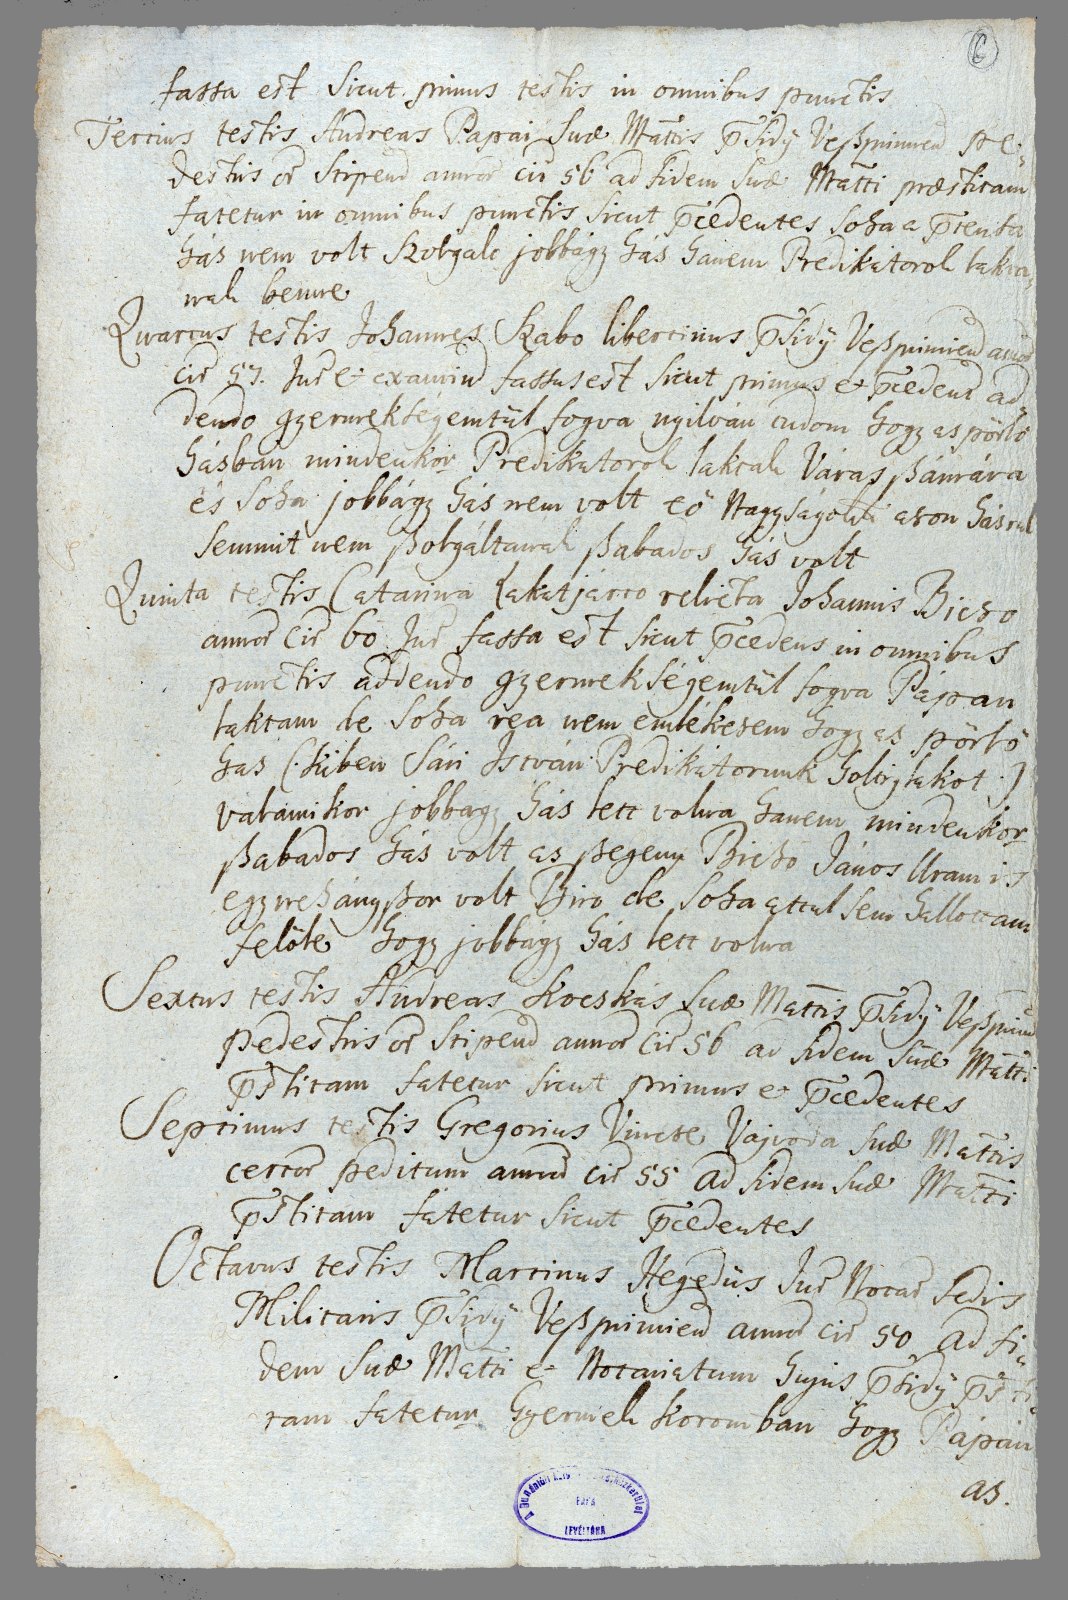 6
fassa est sicut primus testis in omnibus punctis
Tercius testis Andreas Papai Suæ Mattis p̄sidÿ Veßprimien̄ pe-
destris or̄ Stipend̄ annor̄ cir̄ 56 ad fidem Suæ Matti præstitam
fatetur in omnibus punctis sicut p̄cedentes soha a
hás nem volt Szolgalo jobbágÿ hás hanem Predikatorok laktanak
benne
Quartus testis Johannes Szabo libertinus p̄sidÿ Veßprimien̄ annor̄
cir̄ 57. Jur̄ et examin̄ fassus est sicut primus et p̄ceden̄ ad
dendo gÿermeksegemtül fogva nyilván tudom hogÿ as pörlö
hásban mindenkor Predikatorok laktak Váras ßámára
és soha jobbágÿ hás nem volt eö Nagÿságok azon hásrul
semmit nem ßolgáltanak ßabados hás volt
Quinta testis Catarina Lakatjarto relicta Johannis Biczo
annor̄ cir̄ 60 Jur̄ fassa est sicut p̄cedens in omnibus
punctis addendo gÿermeksegemtül fogva Pápan
laktam de soha rea nem emlékesem hogÿ as pörlö
has (: kiben Sári István Predikátorunk holtig lakot :)
valamikor jobbagÿ hás lett volna hanem mindenkor
ßabados hás volt as ßegeny Biczo János Uram is
egÿnehányßor volt Biro de soha attul sem hallottam
felöle hogÿ jobbágÿ hás lett volna
Sextus testis Andreas Kocskás Suæ Mattis p̄sidÿ Veßprimien̄
pedestris or̄ Stipend̄ annor̄ cir̄ 56 ad fidem Suæ Matti
p̄stitam fatetur sicut primus et p̄cedentes
Septimus testis Gregorius Vincze Vajvoda Suæ Mattis
certor̄ peditum annor̄ cir̄ 55 ad fidem Suæ Matti
p̄stitam fatetur sicut p̄cedentes
Octavus testis Martinus Hegedüs Jur̄ Notar̄ Sedis
Militaris p̄sidÿ Veßprimien̄ annor̄ cir̄ 50 ad fi-
dem Suæ Matti et Notariatum hujus p̄sidÿ p̄sti-
tam fatetur Gÿermek koromban hogÿ Pápán
as.
A Dunántúli Ref. Egyházkerület
PÁPA
LEVÉLTÁRA